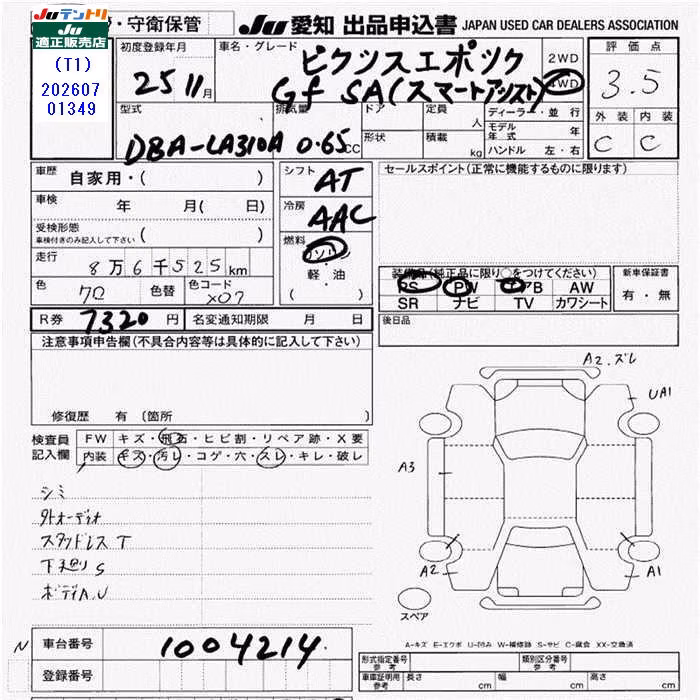 JUテントリ
JU
適正販売店
(T1)
202607
01349
・守衛保管
JU 愛知 出品申込書 JAPAN USED CAR DEALERS ASSOCIATION
初度登録年月
25 11月
車名・グレード
ピクシスエポック
Gf SA(スマートアシスト)
2WD
4WD
評価点
3.5
外装 内装
C C
型式
DBA-LA310A
排気量
0.65cc
ドア
形状
定員
人
積載
kg
ディーラー・並行
モデル年式 年
ハンドル 左・右
車歴 自家用・( )
車検 年 月( 日)
受検形態
車検付きのみ記入して下さい ( )
走行 8万6千525km
色 色替 色コード X07
シフト AT
冷房 AAC
燃料 ガソリン
軽・油
( )
セールスポイント(正常に機能するものに限ります)
装備品(純正品に限り○をつけてください)
PS PW エアB AW
SR ナビ TV カワシート
新車保証書
有・無
R券 7320円
名変通知期限 月 日
後日品
注意事項申告欄(不具合内容等は具体的に記入して下さい)
修復歴 有(箇所 )
検査員記入欄
FW キズ・飛石・ヒビ割・リペア跡・X要
内装 キズ・汚レ・コゲ・穴・スレ・キレ・破レ
シミ
外オーディオ
スタッドレスT
下廻りS
ボディA,U
A2.ズレ
UA1
A3
A2
A1
スペア
A-キズ E-エクボ U-凹み W-補修跡 S-サビ C-腐食 XX-交換済
N
車台番号 1004214
登録番号
形式指定番号 参考
類別区分番号 参考
車庫証明用 参考 長さ cm 幅 cm 高さ cm